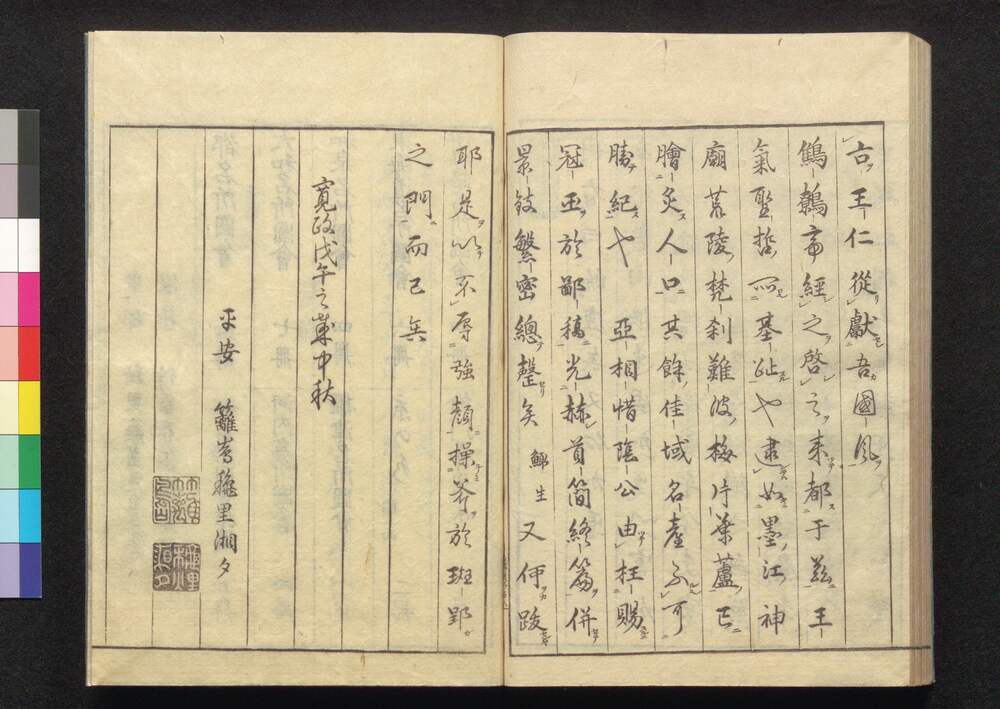 古王仁從獻吾國風
鷦鷯帝經之啓之來都于茲王
氣聖哲所基趾也逮如墨江神
廟荒陵梵刹難波梅片葉蘆已
膾炙人口其餘佳域名臺不可
勝紀也 亞相惜陰公由枉賜
冠玉於鄙稿光赫首簡終篇併
景鼓繁密總整矣 鯫生又何跋
耶是以不辱強顏操斧於班郢
之門而已矣
寛政戊午之歲中秋
平安 籬嶌秋里湘夕